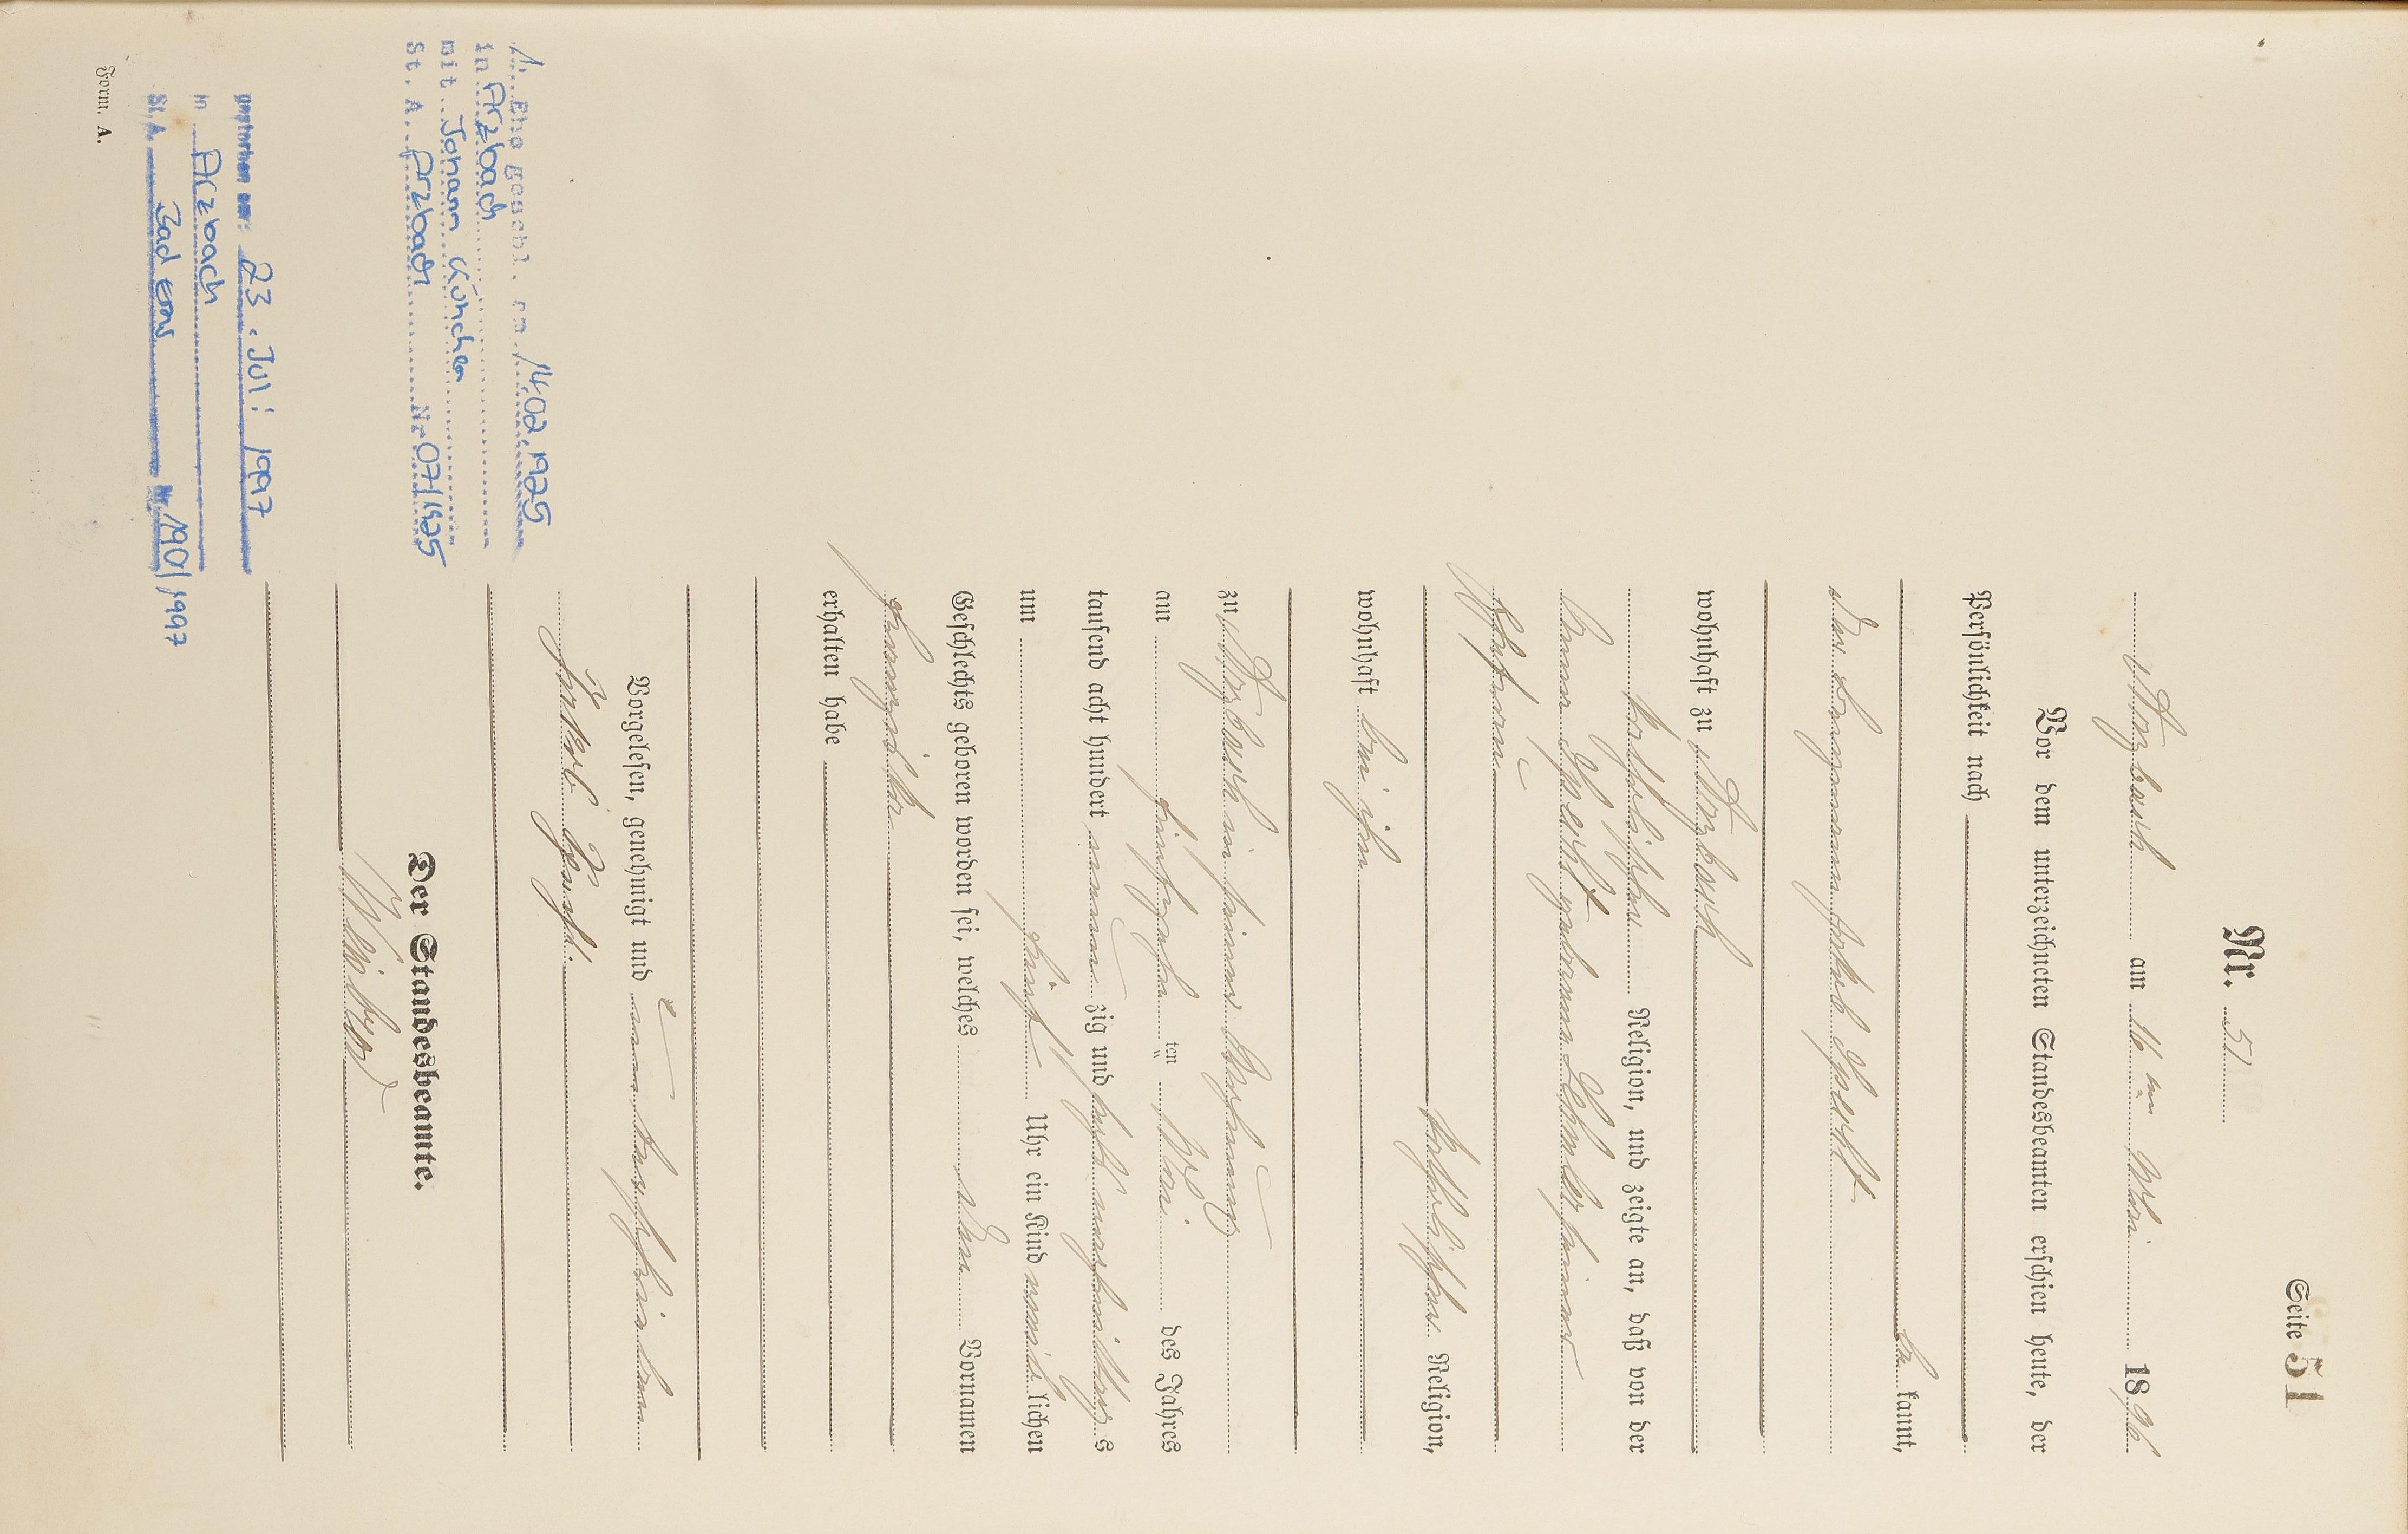 Seite 51
Nr. 51
Arzbach am 16ten Mai 1896
Vor dem unterzeichneten Standesbeamten erschien heute, der
Persönlichkeit nach
be kannt,
der Bergmann Jakob Specht
wohnhaft zu Arzbach
katholischer Religion, und zeigte an, daß von der
Specht geborenen seiner
Ehefrau
katholischer Religion,
wohnhaft bei ihm
zu Arzbach in seiner Wohnung
am fünfzehn ten Mai des Jahres
tausend acht hundert neun zig und sechs nachmittag s
um fünf Uhr ein Kind männ lichen
Geschlechts geboren worden sei, welches den Vornamen
erhalten habe
Vorgelesen, genehmigt und unterschrieben
Jakob Specht.
Der Standesbeamte.
1. Ehe geschl. am 14.02.1925
in Arzbach
mit Johann
St. A. Arzbach Nr 07/1925
gestorben am: 23. Juli 1997
in Arzbach
St. A. Bad Ems Nr. 190/1997
Form. A.